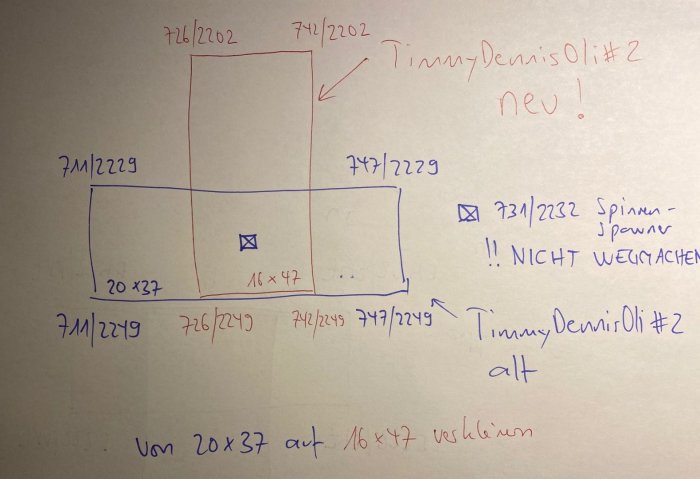 726/2202 742/2202
TimmyDennisOli#2
neu!
711/2229 747/2229
731/2232 Spinnen-
spawner
!! NICHT WEGMACHEN
20x37 16x47
711/2249 726/2249 742/2249 747/2249
TimmyDennisOli#2
alt
Von 20x37 auf 16x47